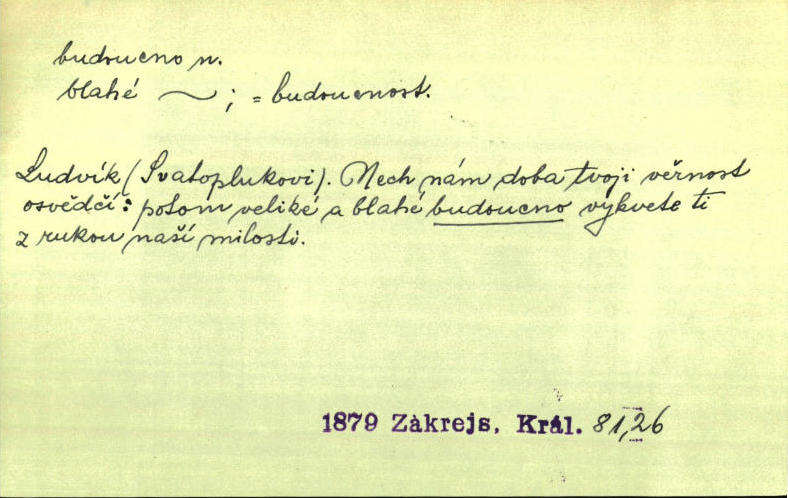 budoucno n.
blahé ~ ; = budoucnost.
Ludvík (Svatoplukovi). Nech nám doba tvoji věrnost
osvědčí: potom veliké a blahé budoucno vykvete ti
z rukou naší milosti.
1879 Zákrejs, Král. 81,26